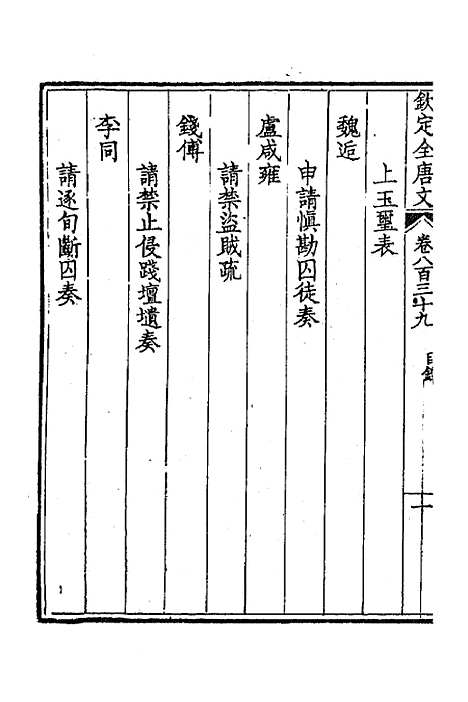 欽定全唐文 卷八百三十九 目錄 二
上玉璽表
魏逅
申請愼勘囚徒奏
盧咸雍
請禁盜賊疏
錢傅
請禁止侵踐壇壝奏
李同
請逐旬斷囚奏